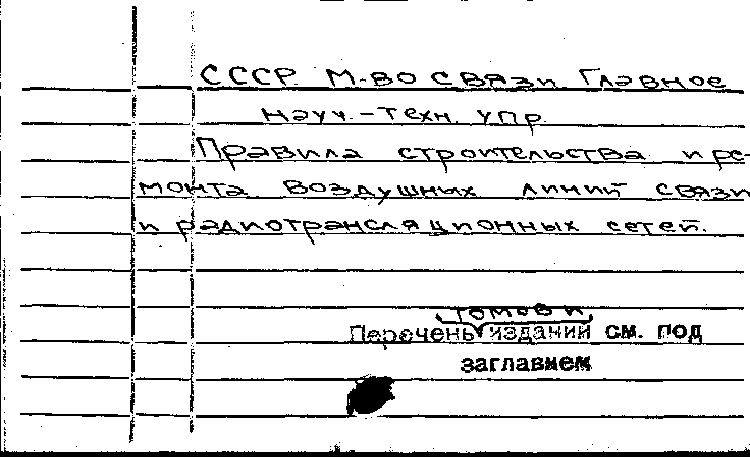 СССР М-во связи Главное
науч.-техн. упр.
Правила строительства и ре-
монта воздушных линий связи
и радиотрансляционных сетей.
томов и
Перечень изданий см. под
заглавием